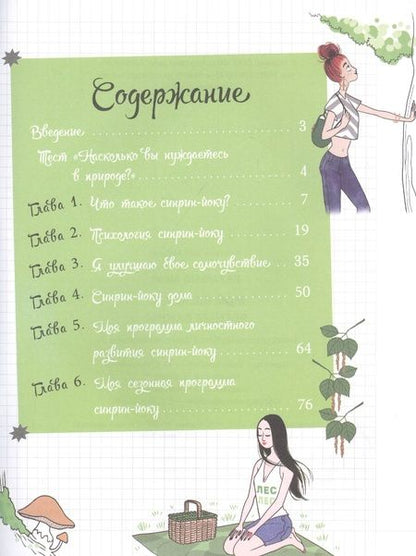 Содержание
Введение 3
Тест «Насколько вы нуждаетесь
в природе?» 4
Глава 1. Что такое синрин-йоку? 7
Глава 2. Психология синрин-йоку 19
Глава 3. Я улучшаю свое самочувствие 35
Глава 4. Синрин-йоку дома 50
Глава 5. Моя программа личностного
развития синрин-йоку 64
Глава 6. Моя сезонная программа
синрин-йоку 76
ЛЕС
ЛЕС